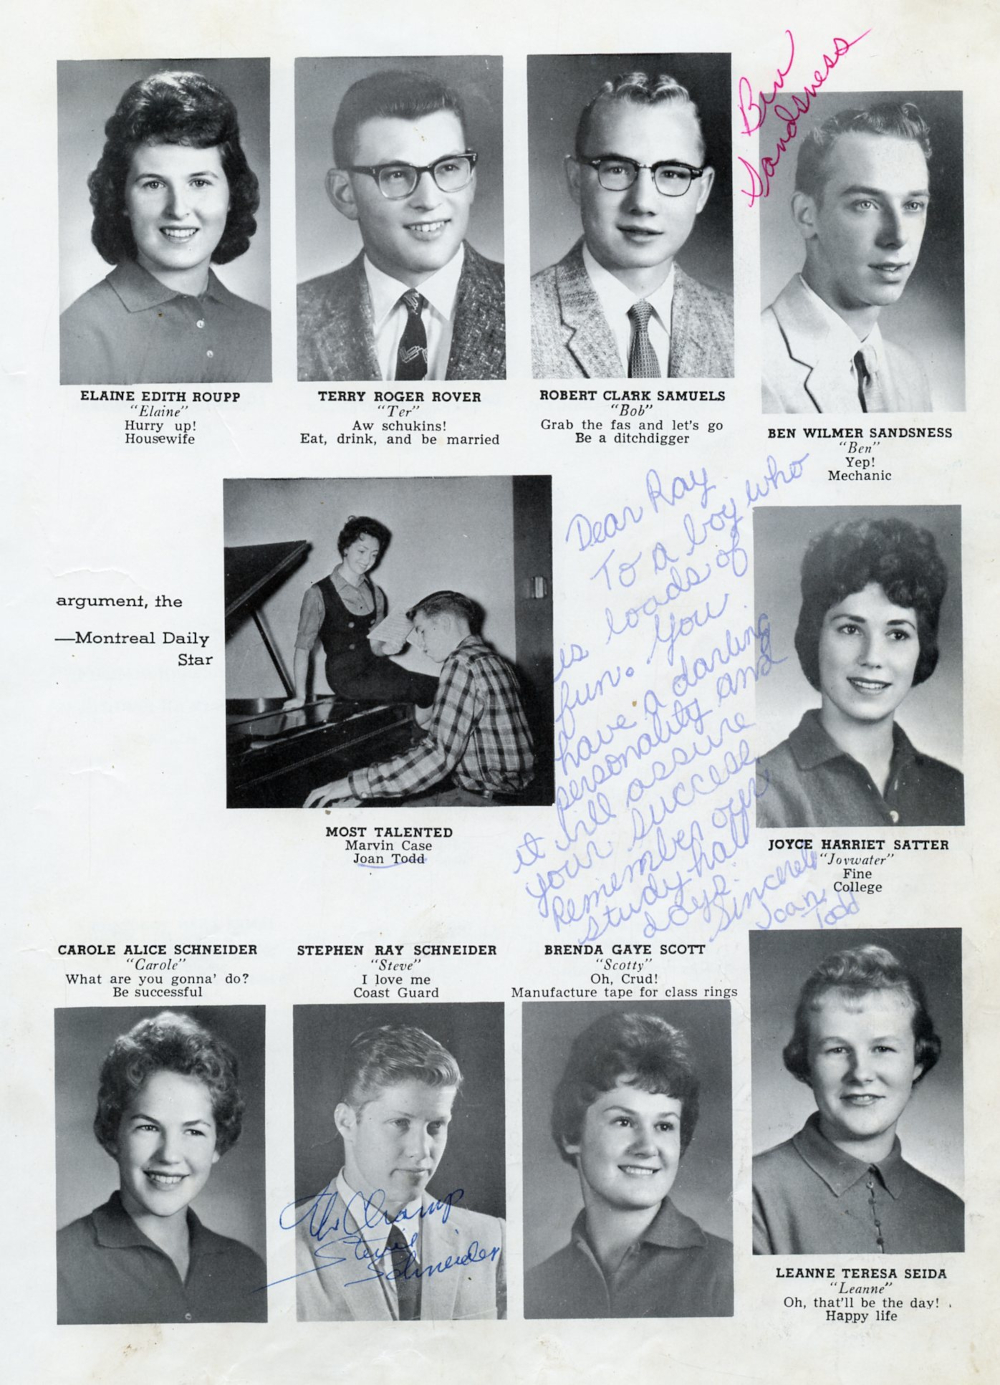 Ben
Sandsness
ELAINE EDITH ROUPP
"Elaine"
Hurry up!
Housewife
TERRY ROGER ROVER
"Ter"
Aw schukins!
Eat, drink, and be married
ROBERT CLARK SAMUELS
"Bob"
Grab the fas and let's go
Be a ditchdigger
BEN WILMER SANDSNESS
"Ben"
Yep!
Mechanic
argument, the
—Montreal Daily
Star
MOST TALENTED
Marvin Case
Joan Todd
Dear Ray
To a boy who
is loads of
fun. You
have a darling
personality and
it will assure
your success
Remember our
study-hall
days.
Sincerely
Joan
Todd
JOYCE HARRIET SATTER
"Joywater"
Fine
College
CAROLE ALICE SCHNEIDER
"Carole"
What are you gonna' do?
Be successful
STEPHEN RAY SCHNEIDER
"Steve"
I love me
Coast Guard
BRENDA GAYE SCOTT
"Scotty"
Oh, Crud!
Manufacture tape for class rings
The Champ
Steve
Schneider
LEANNE TERESA SEIDA
"Leanne"
Oh, that'll be the day!
Happy life